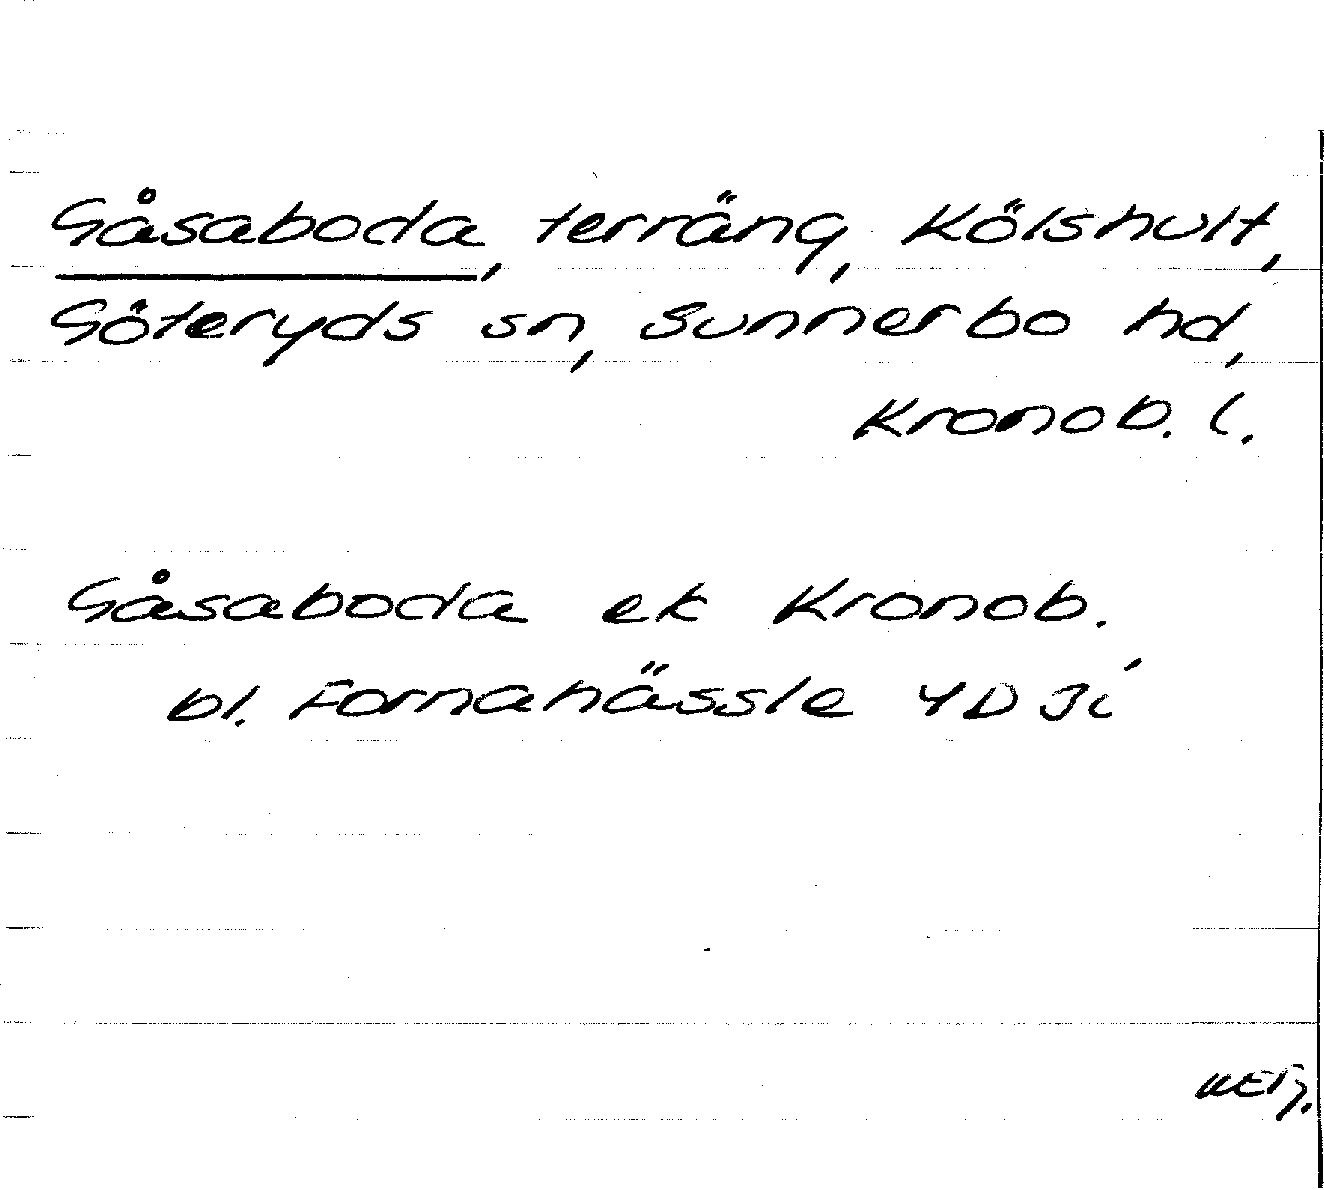 Gåsaboda, terräng, Kölshult,
Göteryds sn, Sunnerbo hd,
Kronob. l.
Gåsaboda ek Kronob.
bl. Fornahässle 4D 3i